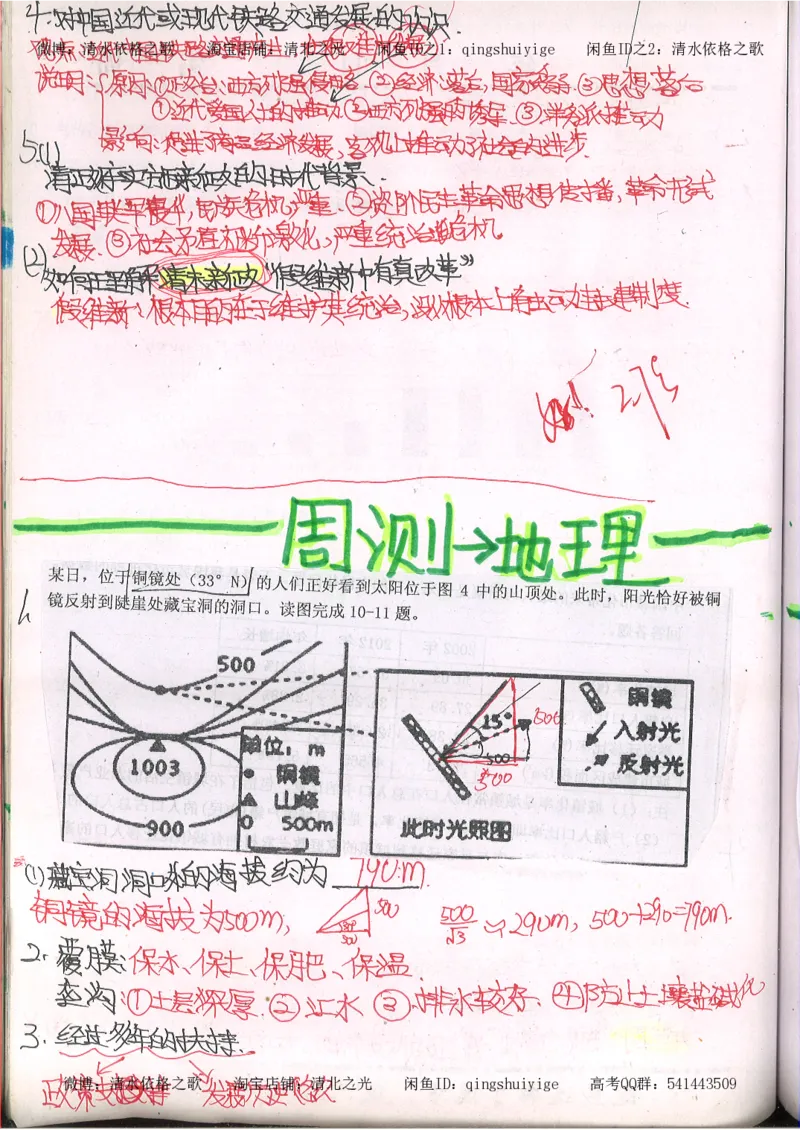 4.对中国近代或现代铁路交通发展的认识
微博：清水依格之歌 淘宝店铺：清北之光 闲鱼ID之1：qingshuiyige 闲鱼ID之2：清水依格之歌
说明：原因：①政治：西方列强侵略 ②经济：落后，国家贫弱 ③思想落后
①近代爱国人士的推动 ②西方列强的诱导 ③洋务派推动
影响：促进了商品经济发展，客观上推动了社会的进步.
5.(1)
清政府实施新政的时代背景.
①八国联军侵华，民族危机严重. ②资阶民主革命思想传播，革命形式
发展. ③社会矛盾初步激化，严重统治危机.
(2)
如何理解清末新政"假维新中有真改革"
假维新：根本目的在于维护其统治，没从根本上触动封建制度.
周测→地理
某日，位于铜镜处（33°N）的人们正好看到太阳位于图 4 中的山顶处。此时，阳光恰好被铜
镜反射到陡崖处藏宝洞的洞口。读图完成 10-11 题。
500
1003
900
单位：m
铜镜
山峰
500m
15°
500
500
500
此时光照图
铜镜
入射光
反射光
(1)藏宝洞洞口的海拔约为 790m.
铜镜的海拔为500m,
500
500
500/√3 ≈290m, 500+290=790m.
2.覆膜：保水、保土、保肥、保温
垄沟：①土层深厚 ②汇水 ③排水较好、④防止土壤盐碱化
3.经过多年的扶持.
微博：清水依格之歌 淘宝店铺：清北之光 闲鱼ID：qingshuiyige 高考QQ群：541443509